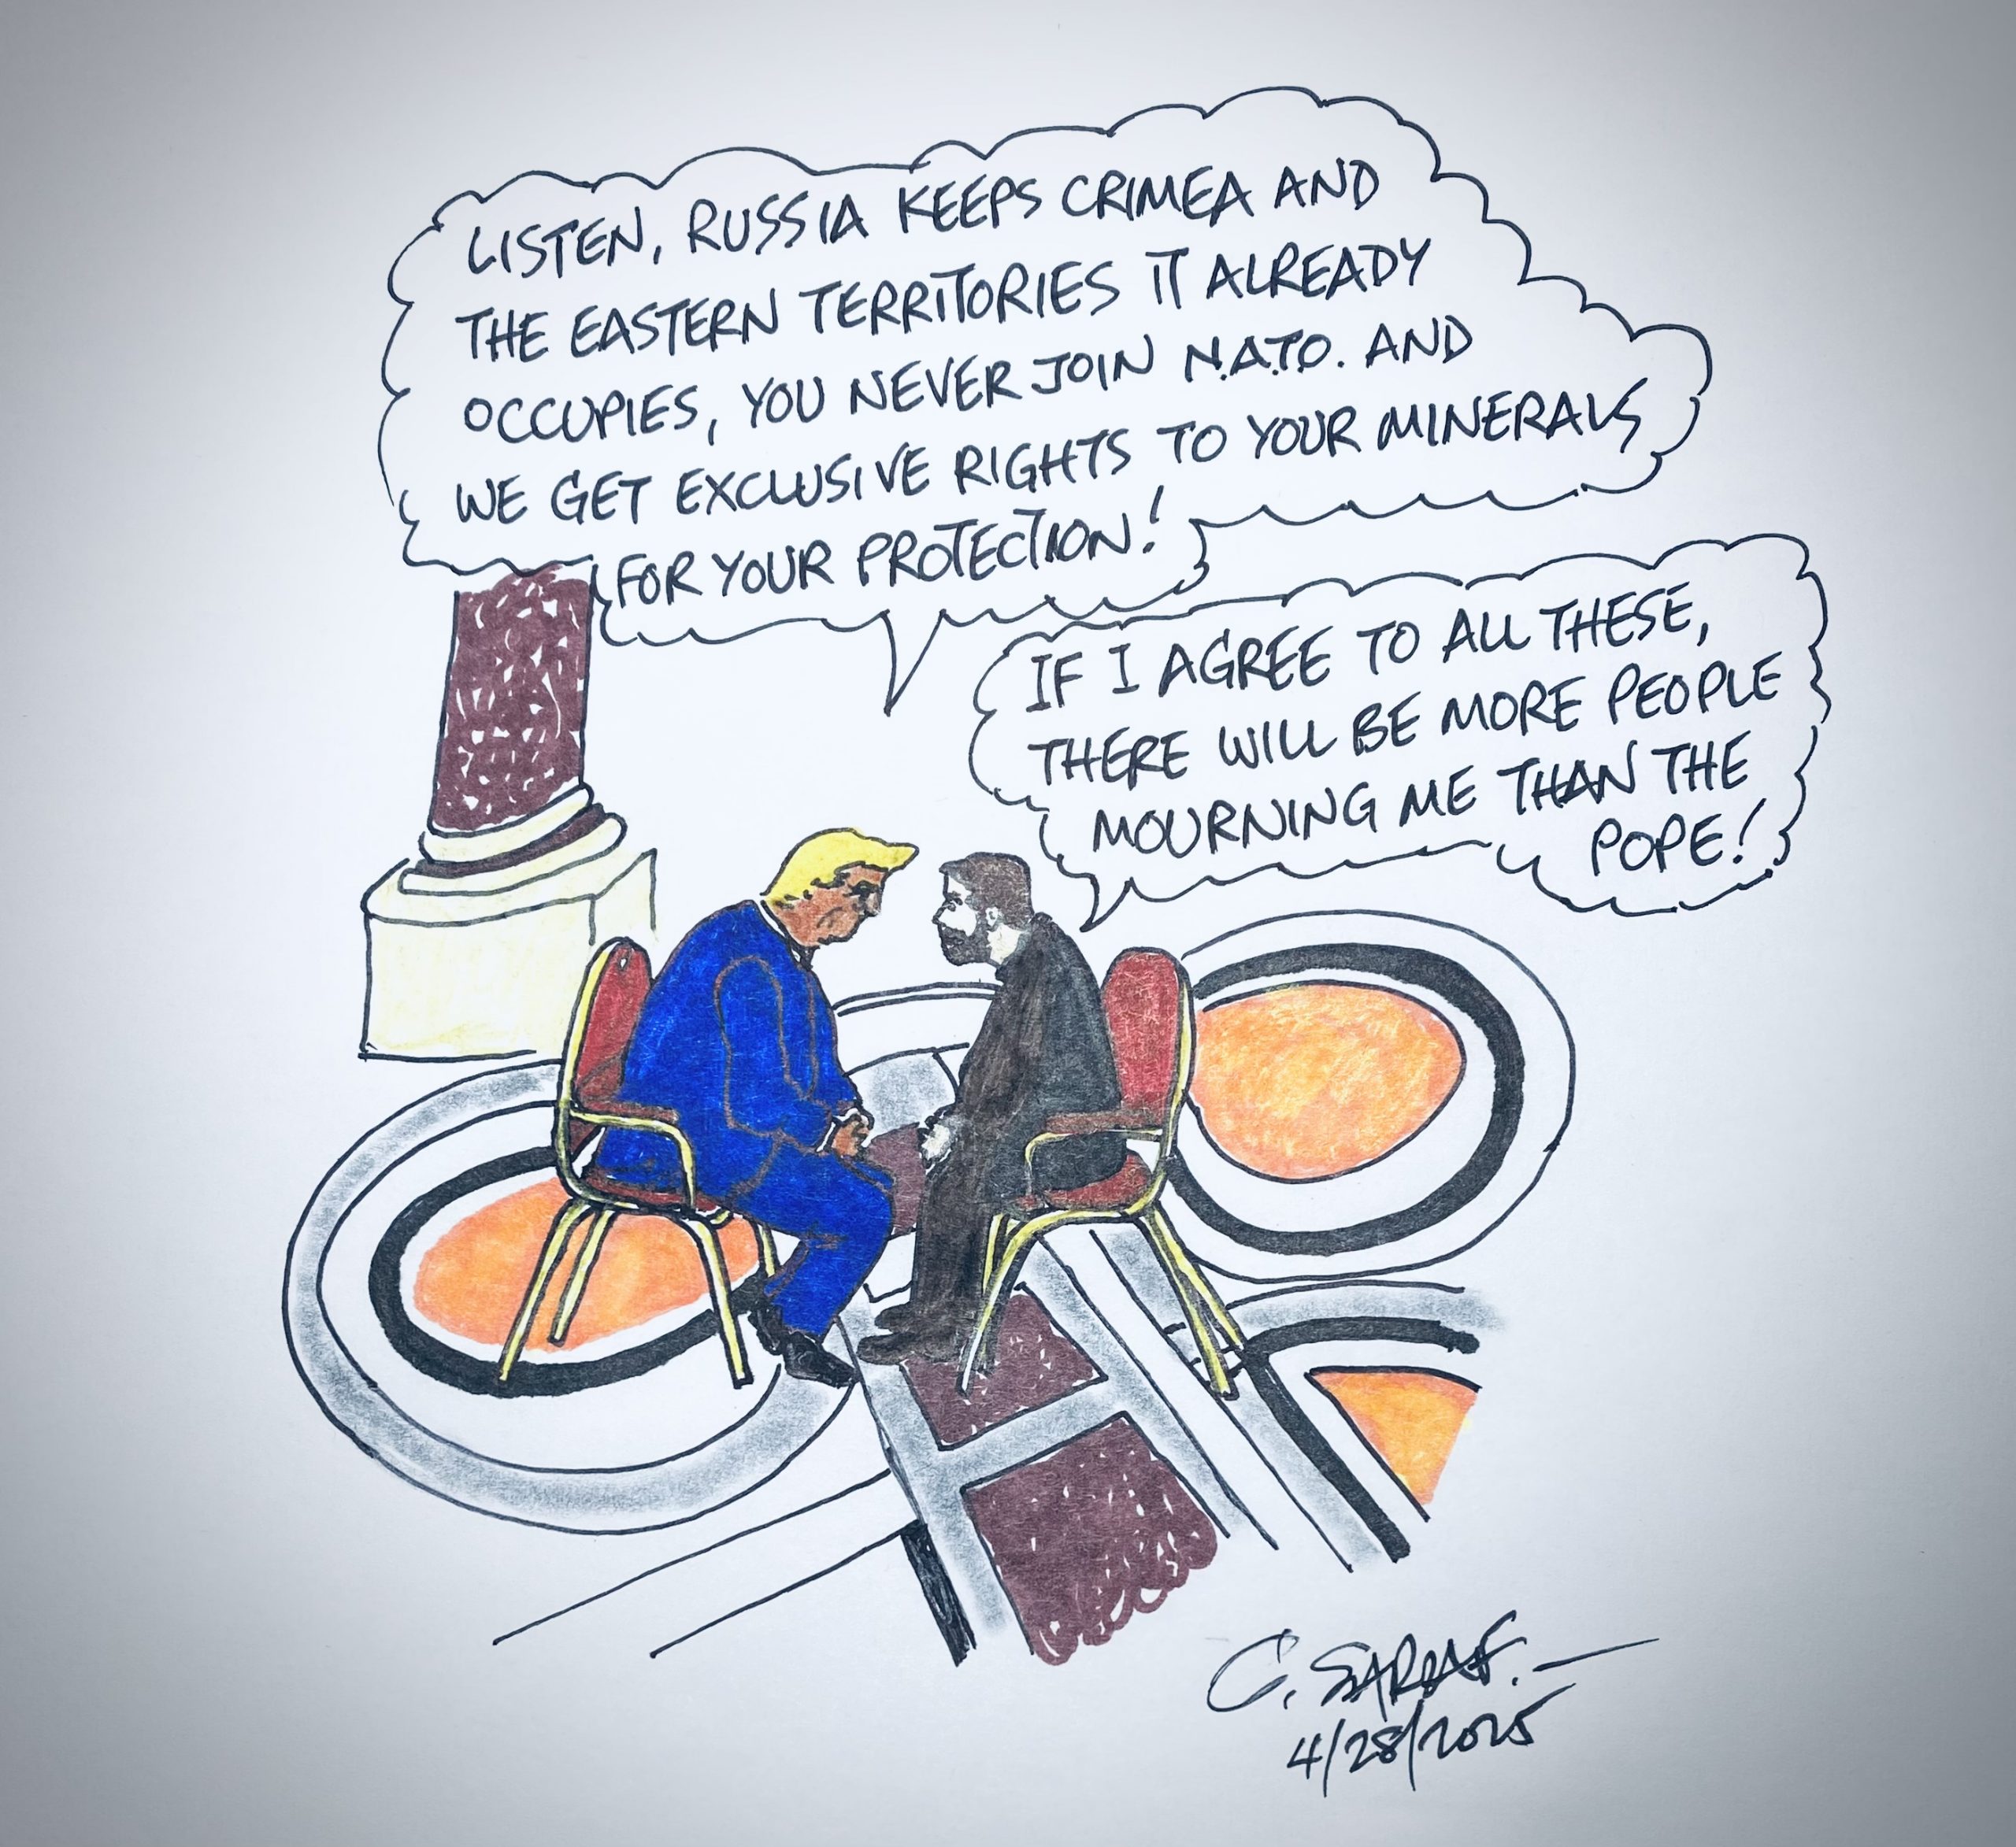 LISTEN, RUSSIA KEEPS CRIMEA AND
THE EASTERN TERRITORIES IT ALREADY
OCCUPIES, YOU NEVER JOIN N.A.T.O. AND
WE GET EXCLUSIVE RIGHTS TO YOUR MINERALS
FOR YOUR PROTECTION!
IF I AGREE TO ALL THESE,
THERE WILL BE MORE PEOPLE
MOURNING ME THAN THE
POPE!
C. SARAF.
4/28/2025